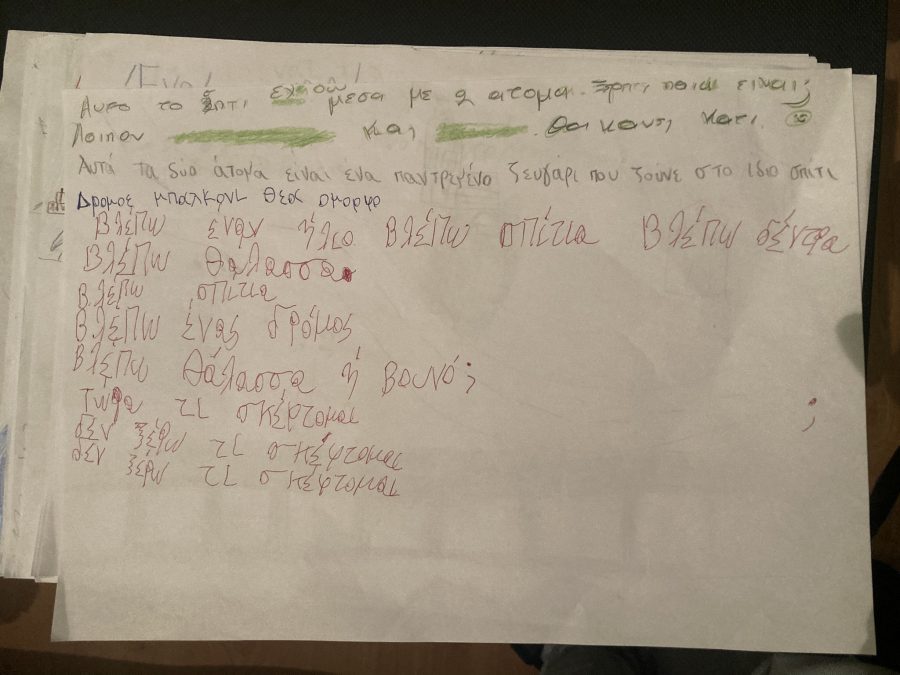 Ένα
Αυτο το σπιτι εχει μεσα με 2 ατομα. ποιά ειναι;
Λοιπον και . θα κανει κατι.
Αυτά τα δύο άτομα είναι ένα παντρεμένο ζευγάρι που ζούνε στο ίδιο σπίτι
Δρομος μπαλκονι θεα ομορφο
Βλέπω έναν ήλιο Βλέπω σπίτια Βλέπω δέντρα
Βλέπω θάλασσα
Βλέπω σπίτια
Βλέπω ένας δρόμος
Βλέπω θάλασσα ή βουνό;
Τώρα τι σκέφτομαι ;
δεν ξέρω τι σκέφτομαι
δεν ξέρω τι σκέφτομαι